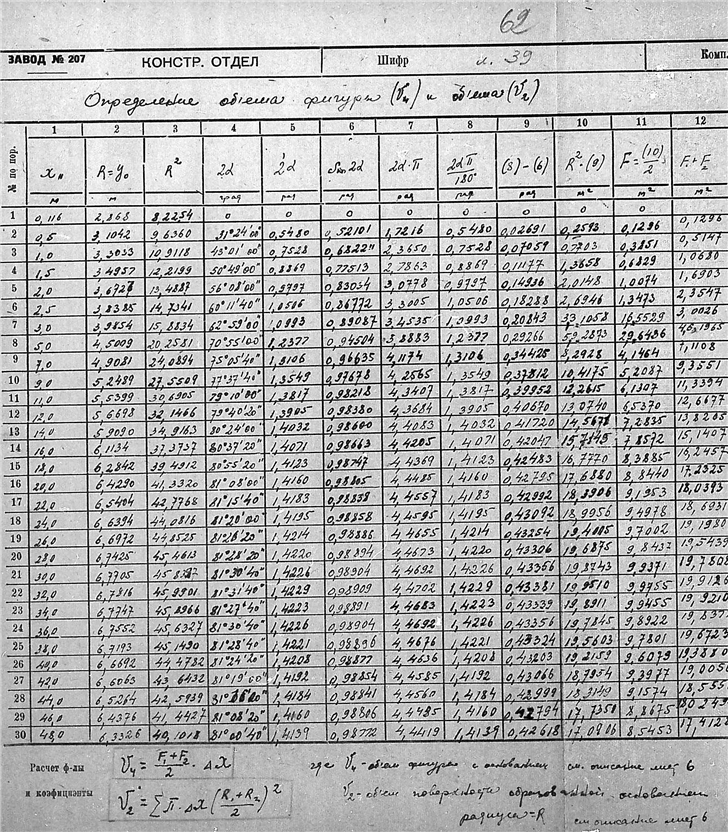 62
ЗАВОД № 207 КОНСТР. ОТДЕЛ Шифр л. 39 Комп.
Определение объема фигуры (V₄) и объема (V₂)
№ по пор. 1 2 3 4 5 6 7 8 9 10 11 12
xₙ R=y₀ R² 2α 2α Sin 2α 2α·П 2αП/180° (8)-(6) R²·(9) F=(10)/2 F₁+F₂
м м град рад рад рад м² м² м²
1 0,116 2,868 8,2254 0 0 0 0 0 0 0 0
2 0,5 3,1042 9,6360 31°24'00" 0,5480 0,52101 1,7216 0,5480 0,02691 0,2593 0,1296 0,1296
3 1,0 3,3033 10,9118 43°01'00" 0,7528 2,3650 0,7528 0,07059 0,7703 0,3851 0,5147
4 1,5 3,4957 12,2199 50°49'00" 0,8869 0,77513 2,7863 0,8869 0,11177 1,3658 0,6829 1,0680
5 2,0 13,4887 56°08'00" 0,9797 0,83034 3,0778 0,9797 0,14936 2,0148 1,0074 1,6903
6 2,5 3,8385 14,7341 60°11'40" 1,0506 3,3005 1,0506 0,18288 2,6946 1,3473 2,3547
7 3,0 3,9854 15,8834 62°59'00" 1,0993 0,89087 3,4535 1,0993 0,20843 3,0026
8 5,0 4,5009 20,2581 70°55'00" 1,2377 0,94504 3,8883 1,2377 0,29266
9 7,0 4,9081 24,0894 75°05'40" 1,3106 0,96635 4,1174 1,3106 0,34425 8,2928 4,1464 7,1108
10 9,0 5,2489 27,5509 77°37'40" 1,3549 0,97678 4,2565 1,3549 0,37812 10,4175 5,2087 9,3551
11 11,0 5,5399 30,6905 79°10'00" 1,3817 0,98218 4,3407 1,3817 0,39952 12,2615 6,1307 11,3394
12 12,0 5,6698 32,1466 79°40'20" 1,3905 0,98380 4,3684 1,3905 0,40670 13,0740 6,5370 12,6677
13 14,0 5,9090 34,9163 80°24'00" 1,4032 0,98600 4,4083 1,4032 0,41720 14,5671 7,2835 13,8205
14 16,0 6,1134 37,3737 80°37'20" 1,4071 0,98663 4,4205 1,4071 0,42047 15,7145 7,8572 15,1407
15 18,0 6,2842 39,4912 80°55'20" 1,4123 0,98747 4,4369 1,4123 0,42483 16,7770 8,3885 16,2457
16 20,0 6,4290 41,3320 81°08'00" 1,4160 0,98805 4,4485 1,4160 0,42795 17,6880 8,8440 17,2325
17 22,0 6,5404 42,7768 81°15'40" 1,4183 0,98838 4,4557 1,4183 0,42992 18,3906 9,1953 18,0393
18 24,0 6,6394 44,0816 81°20'00" 1,4195 0,98858 4,4595 1,4195 0,43092 18,9956 9,4978 18,6931
19 26,0 6,6972 44,8525 81°26'20" 1,4214 0,98886 4,4655 1,4214 0,43254 19,4005 9,7002 19,1980
20 28,0 6,7425 45,4613 81°28'20" 1,4220 0,98894 4,4673 1,4220 0,43306 19,6875 9,8437 19,5439
21 30,0 6,7705 81°30'40" 1,4226 0,98904 4,4692 1,4226 0,43356 19,8743 9,9371 19,7808
22 32,0 6,7816 45,9901 81°31'40" 1,4229 0,98909 4,4702 1,4229 0,43381 19,9510 9,9755 19,9126
23 34,0 6,7747 45,8966 81°27'40" 1,4223 0,98891 4,4683 1,4223 0,43339 19,8911 9,9455 19,9210
24 36,0 6,7552 45,6327 81°30'40" 1,4226 0,98904 4,4692 1,4226 0,43356 19,7845 9,8922
25 38,0 6,7193 45,1490 81°28'40" 1,4221 0,98896 4,4676 1,4221 0,43324 19,5603 9,7801 19,6723
26 40,0 6,6692 44,4782 81°24'20" 1,4208 0,98877 4,4636 1,4208 0,43203 19,2159 9,6079 19,3880
27 42,0 6,6063 43,6432 81°19'00" 1,4192 0,98854 4,4585 1,4192 0,43066 18,7954 9,3977
28 44,0 6,5264 42,5939 1,4184 0,98841 4,4560 1,4184 0,42999 18,3149 9,1574
29 46,0 6,4376 41,4427 81°08'20" 1,4160 0,98806 4,4485 1,4160 0,42794 17,7350 8,8675
30 48,0 6,3326 40,1018 81°00'40" 1,4139 0,98772 4,4419 1,4139 0,42618 17,0906 8,5453
Расчет ф-лы V₄ = (F₁+F₂)/2 · Δx где V₄ - объем фигуры с основанием см. описание лист 6
и коэфициенты V₂ = Σ П·Δx ((R₁+R₂)/2)² V₂ - объем поверхности основанием
радиуса = R см описание лист 6